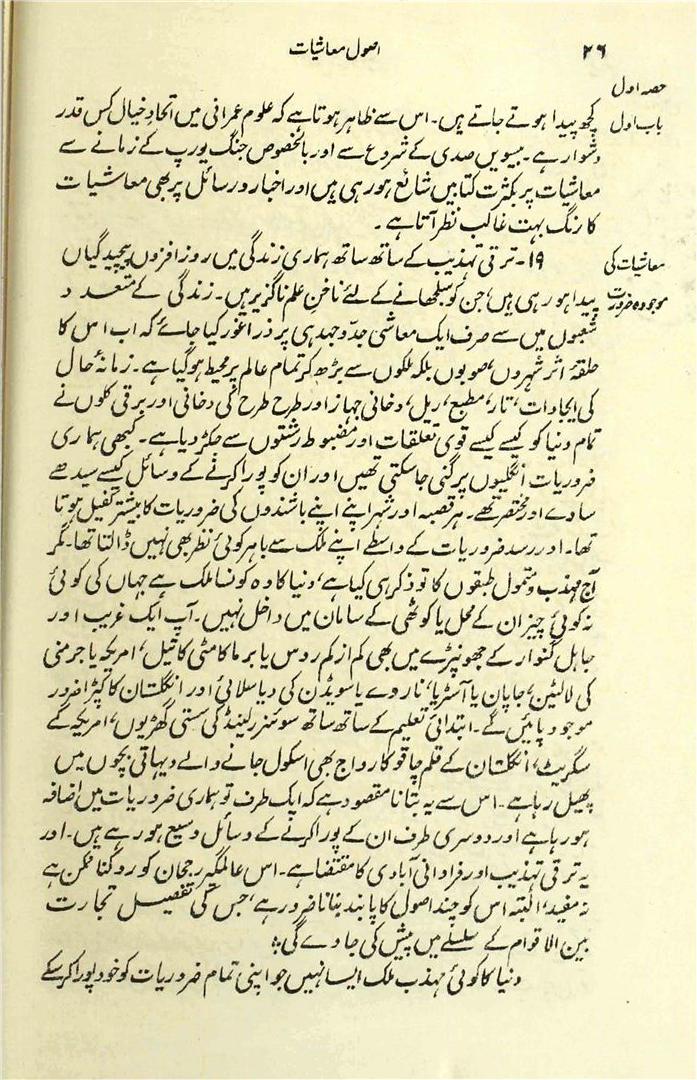 ۲۶
اصول معاشیات
حصہ اول
باب اول
کچھ پیدا ہوتے جاتے ہیں۔ اس سے ظاہر ہوتا ہے کہ علوم عمرانی میں اتحادِ خیال کس قدر
دشوار ہے۔ بیسویں صدی کے شروع سے اور بالخصوص جنگ یورپ کے زمانے سے
معاشیات پر بکثرت کتابیں شائع ہو رہی ہیں اور اخبار و رسائل پر بھی معاشیات
کا رنگ بہت غالب نظر آتا ہے۔
معاشیات کی
موجودہ ضرورت
۱۹۔ ترقی تہذیب کے ساتھ ساتھ ہماری زندگی میں روز افزوں پیچیدگیاں
پیدا ہو رہی ہیں، جن کو سلجھانے کے لئے ناخنِ علم ناگزیر ہیں۔ زندگی کے متعدد
شعبوں میں سے صرف ایک معاشی جدوجہد ہی پر ذرا غور کیا جائے کہ اب اس کا
حلقۂ اثر شہروں، صوبوں بلکہ ملکوں سے بڑھ کر تمام عالم پر محیط ہو گیا ہے۔ زمانۂ حال
کی ایجادات، تار، مطبع، ریل، دخانی جہاز اور طرح طرح کی دخانی اور برقی کلوں نے
تمام دنیا کو کیسے کیسے قوی تعلقات اور مضبوط رشتوں سے جکڑ دیا ہے۔ کبھی ہماری
ضروریات انگلیوں پر گنی جا سکتی تھیں اور ان کو پورا کرنے کے وسائل کیسے سیدھے
سادے اور مختصر تھے۔ ہر قصبہ اور شہر اپنے اپنے باشندوں کی ضروریات کا بیشتر کفیل ہوتا
تھا۔ اور رسد ضروریات کے واسطے اپنے ملک سے باہر کوئی نظر بھی نہیں ڈالتا تھا۔ مگر
آج مہذب و متمول طبقوں کا تو ذکر ہی کیا ہے، دنیا کا وہ کونسا ملک ہے جہاں کی کوئی
نہ کوئی چیز ان کے محل یا کوٹھی کے سامان میں داخل نہیں۔ آپ ایک غریب اور
جاہل گنوار کے جھونپڑے میں بھی کم از کم روس یا برما کا مٹی کا تیل، امریکہ یا جرمنی
کی لالٹین، جاپان یا آسٹریا، ناروے یا سویڈن کی دیا سلائی اور انگلستان کا کپڑا ضرور
موجود پائیں گے۔ ابتدائی تعلیم کے ساتھ ساتھ سوئٹزرلینڈ کی سستی گھڑیوں، امریکہ کے
سگریٹ، انگلستان کے قلم چاقو کا رواج بھی اسکول جانے والے دیہاتی بچوں میں
پھیل رہا ہے۔ اس سے یہ بتانا مقصود ہے کہ ایک طرف تو ہماری ضروریات میں اضافہ
ہو رہا ہے اور دوسری طرف ان کے پورا کرنے کے وسائل وسیع ہو رہے ہیں۔ اور
یہ ترقی تہذیب اور فراوانی آبادی کا مقتضا ہے۔ اس عالمگیر رجحان کو روکنا ممکن ہے
نہ مفید، البتہ اس کو چند اصول کا پابند بنانا ضرور ہے، جس کی تفصیل تجارت
بین الاقوام کے سلسلے میں پیش کی جاوے گی؛
دنیا کا کوئی مہذب ملک ایسا نہیں جو اپنی تمام ضروریات کو خود پورا کر سکے